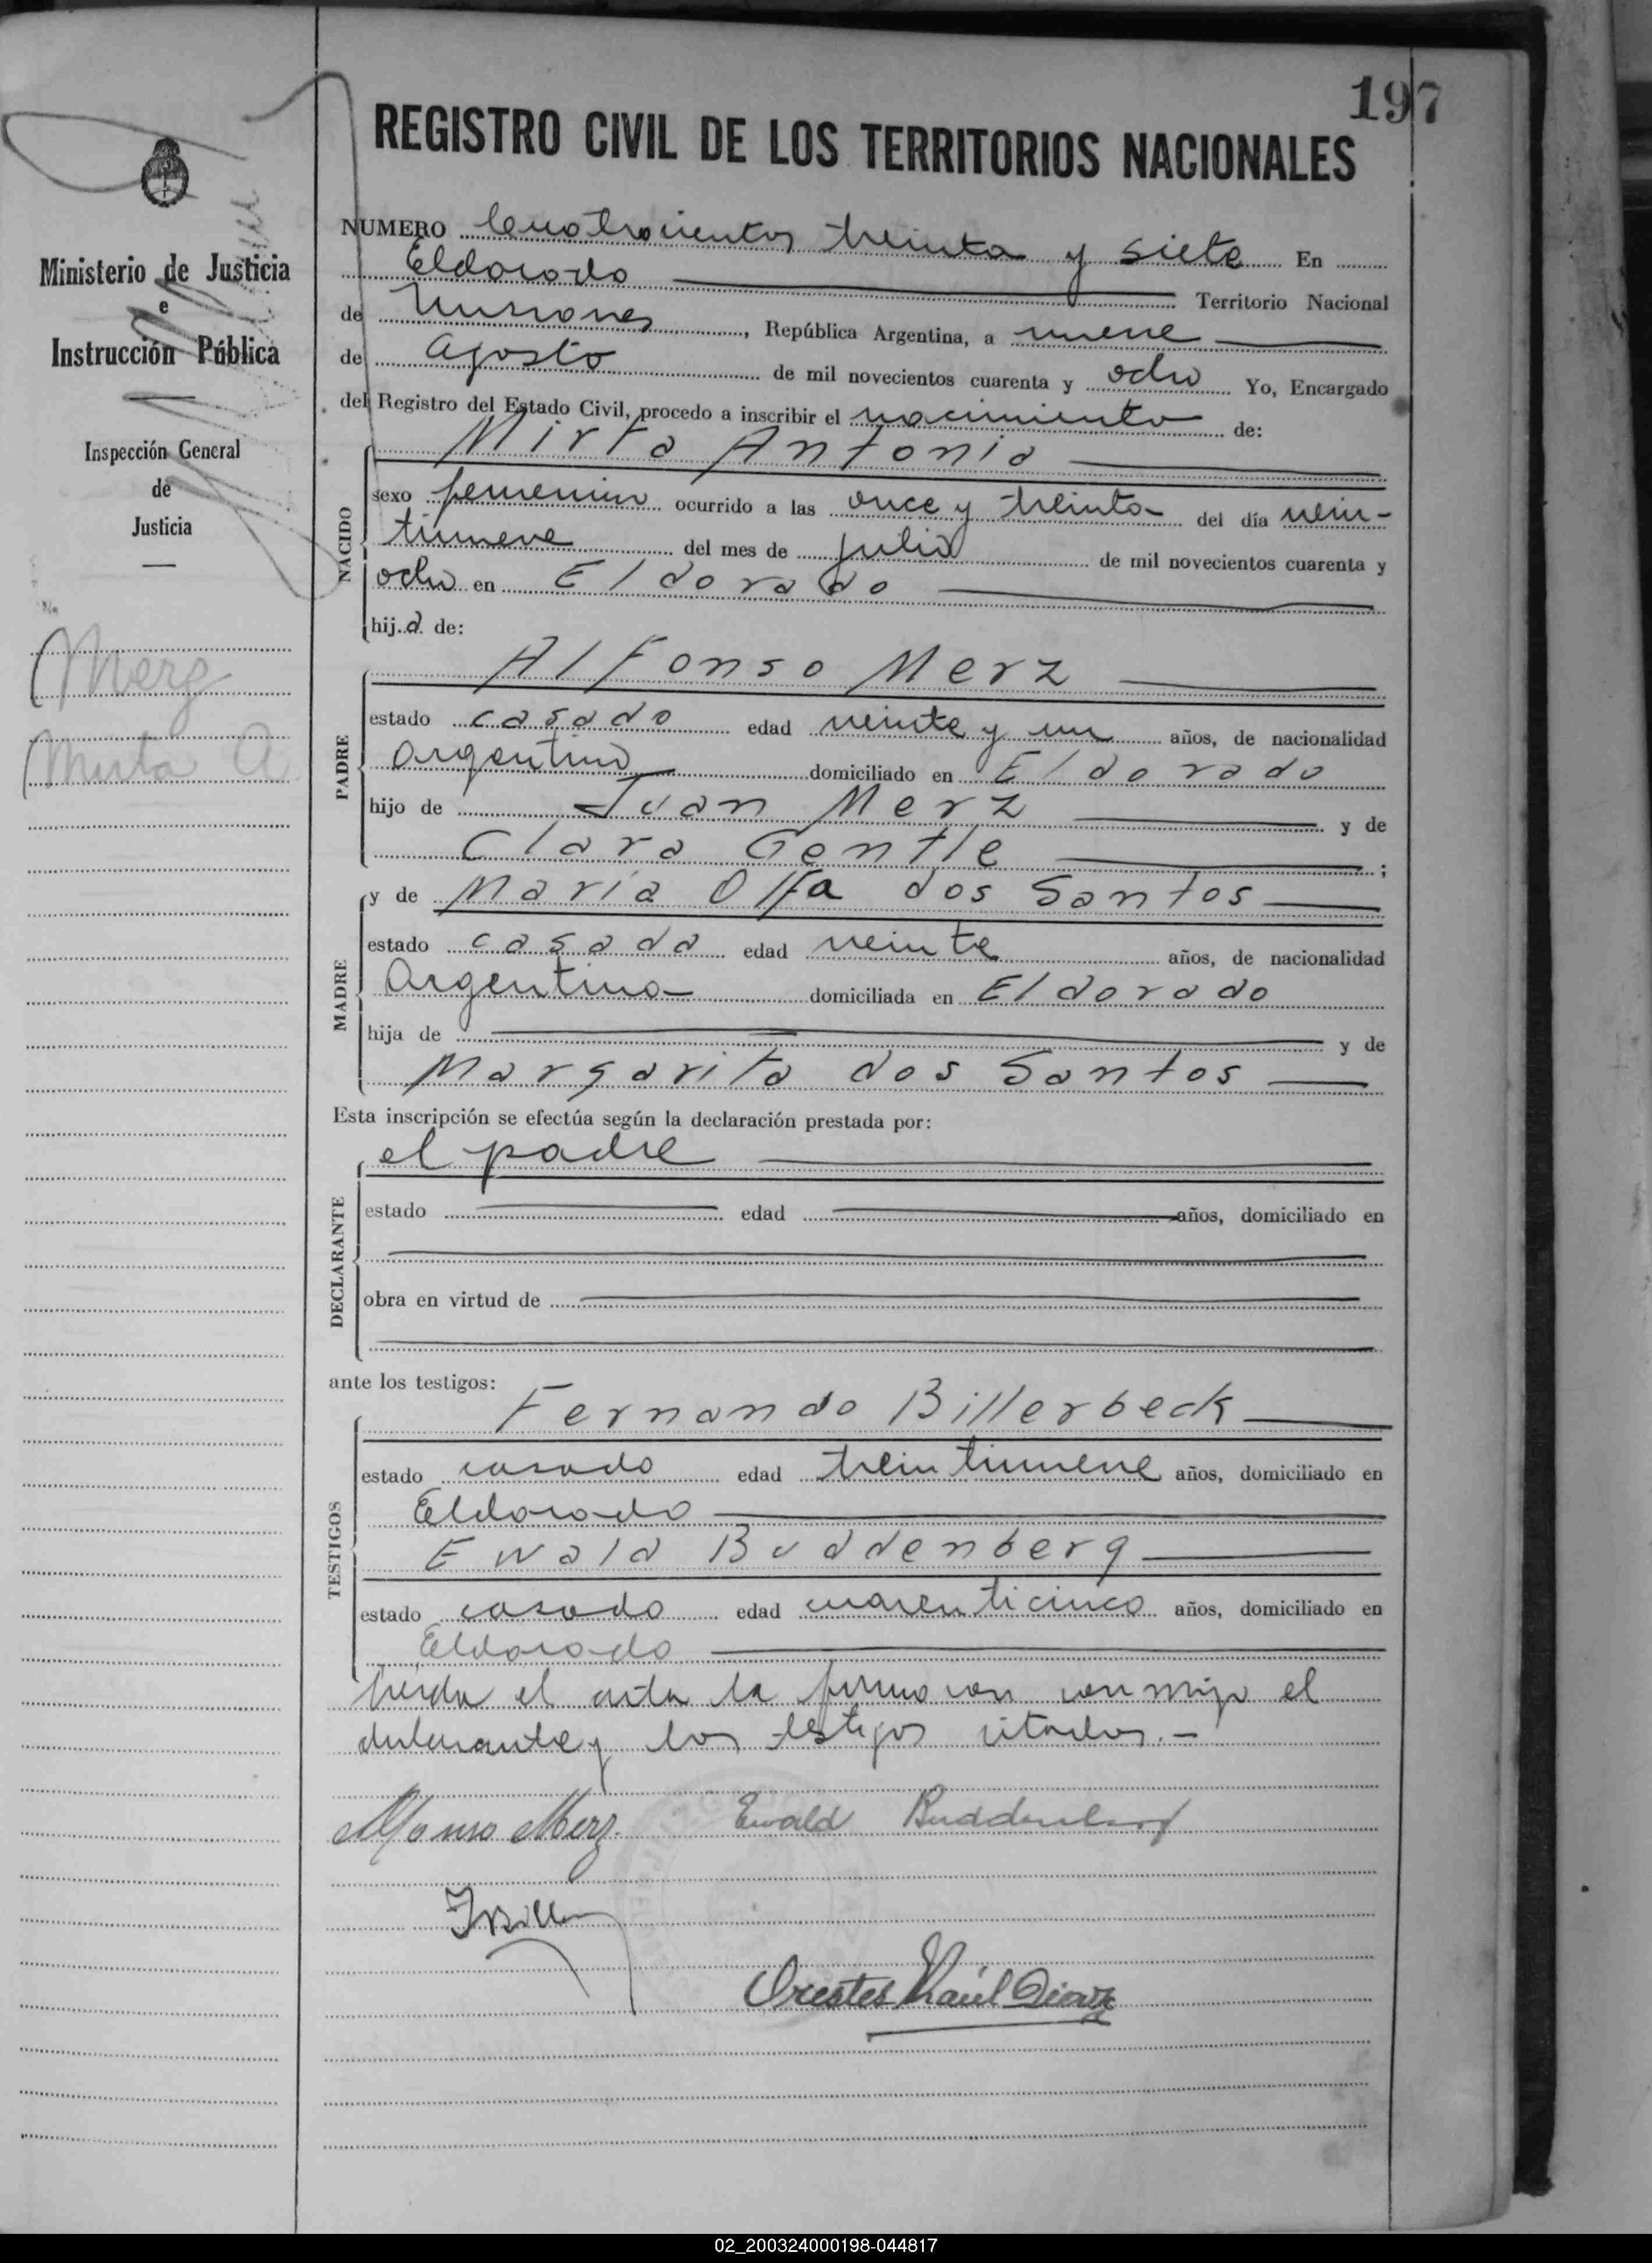 197
REGISTRO CIVIL DE LOS TERRITORIOS NACIONALES
Ministerio de Justicia
e
Instrucción Pública
Inspección General
de
Justicia
Merz
Mirta A
NUMERO Cuatrocientos treinta y siete En
Eldorado Territorio Nacional
de Misiones, República Argentina, a nueve
de agosto de mil novecientos cuarenta y ocho Yo, Encargado
del Registro del Estado Civil, procedo a inscribir el nacimiento de:
Mirta Antonia
NACIDO
sexo femenino ocurrido a las once y treinta del día vein-
tinueve del mes de julio de mil novecientos cuarenta y
ocho en Eldorado
hija de:
Alfonso Merz
PADRE
estado casado edad veinte y un años, de nacionalidad
Argentino domiciliado en Eldorado
hijo de Juan Merz y de
Clara Gentle ;
y de María Olfa dos Santos
MADRE
estado casada edad veinte años, de nacionalidad
Argentina domiciliada en Eldorado
hija de y de
Margarita dos Santos
Esta inscripción se efectúa según la declaración prestada por:
el padre
DECLARANTE
estado edad años, domiciliado en
obra en virtud de
ante los testigos:
Fernando Billerbeck
TESTIGOS
estado casado edad treintinueve años, domiciliado en
Eldorado
Ewald Buddenberg
estado casado edad cuarenticinco años, domiciliado en
Eldorado
Leída el acta la firmaron conmigo el
declarante y los testigos citados.-
Alfonso Merz. Ewald Buddenberg
FBiller
Orestes Raúl Diaz
02_200324000198-044817